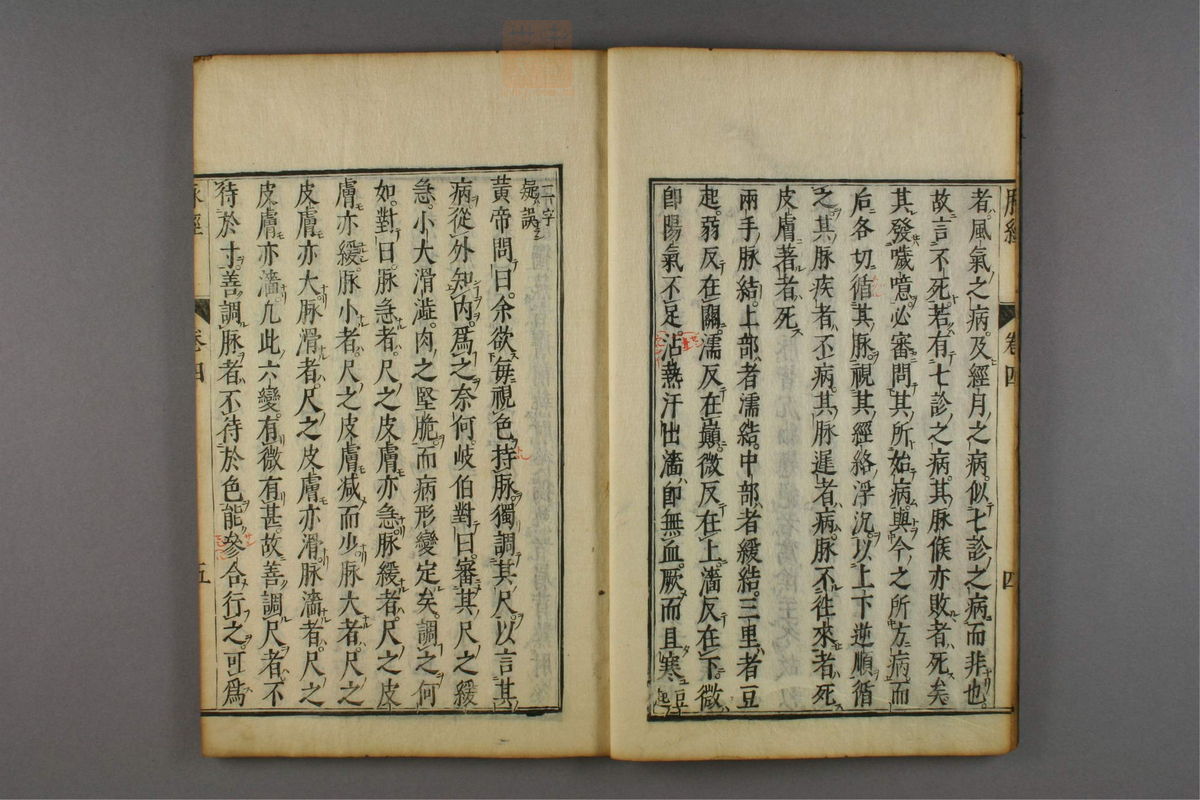 脉經 卷四 四
者風氣之病及經月之病似七診之病而非也
故言不死若有七診之病其脉候亦敗者死矣
其發噦噫必審問其所始病與今之所方病而
后各切循其脉視其經絡浮沉以上下逆順循
之其脉疾者不病其脉遲者病脉不徃來者死
皮膚著者死
兩手脉結上部者濡結中部者緩結三里者豆
起弱反在關濡反在巔微反在上濇反在下微
卽陽氣不足沾熱汗出濇卽無血厥而且寒豆起
二字
疑誤
黃帝問曰余欲每視色持脉獨調其尺以言其
病從外知内爲之奈何岐伯對曰審其尺之緩
急小大滑澁肉之堅脆而病形變定矣調之何
如對曰脉急者尺之皮膚亦急脉緩者尺之皮
膚亦緩脉小者尺之皮膚减而少脉大者尺之
皮膚亦大脉滑者尺之皮膚亦滑脉濇者尺之
皮膚亦濇凢此六變有微有甚故善調尺者不
待於寸善調脉者不待於色能參合行之可爲
脉經 卷四 五